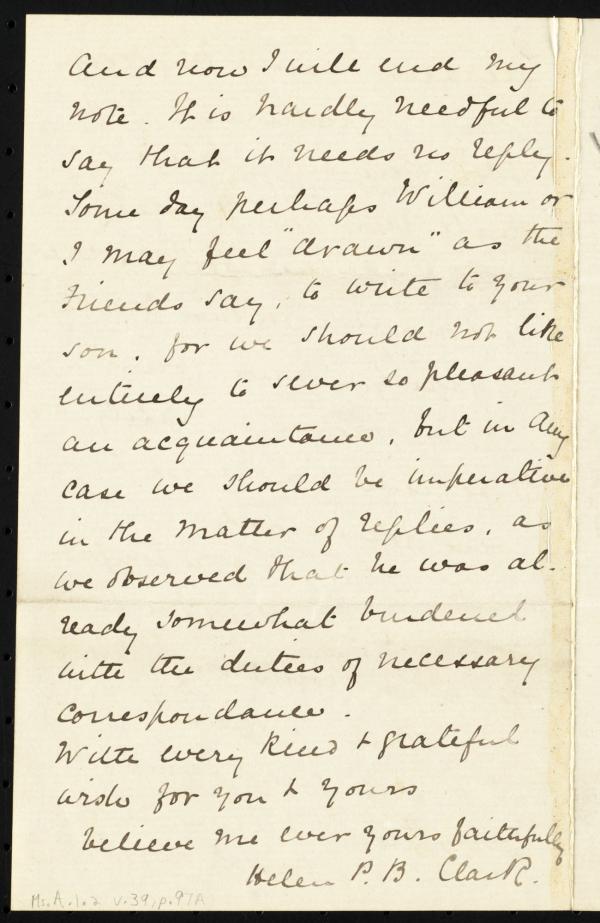 And now I will end my
note. It is hardly needful to
say that it needs no reply.
Some day perhaps William or
I may feel "drawn" as the
Friends say, to write to your
son, for we should not like
entirely to sever so pleasant
an acquaintance, but in any
case we should be imperative
in the matter of replies, as
we observed that he was al-
ready somewhat burdened
with the duties of necessary
correspondance.
With every kind & grateful
wish for you & yours
believe me ever yours faithfully
Helen P. B. Clark.
Ms.A.1.2 v.39, p.97A